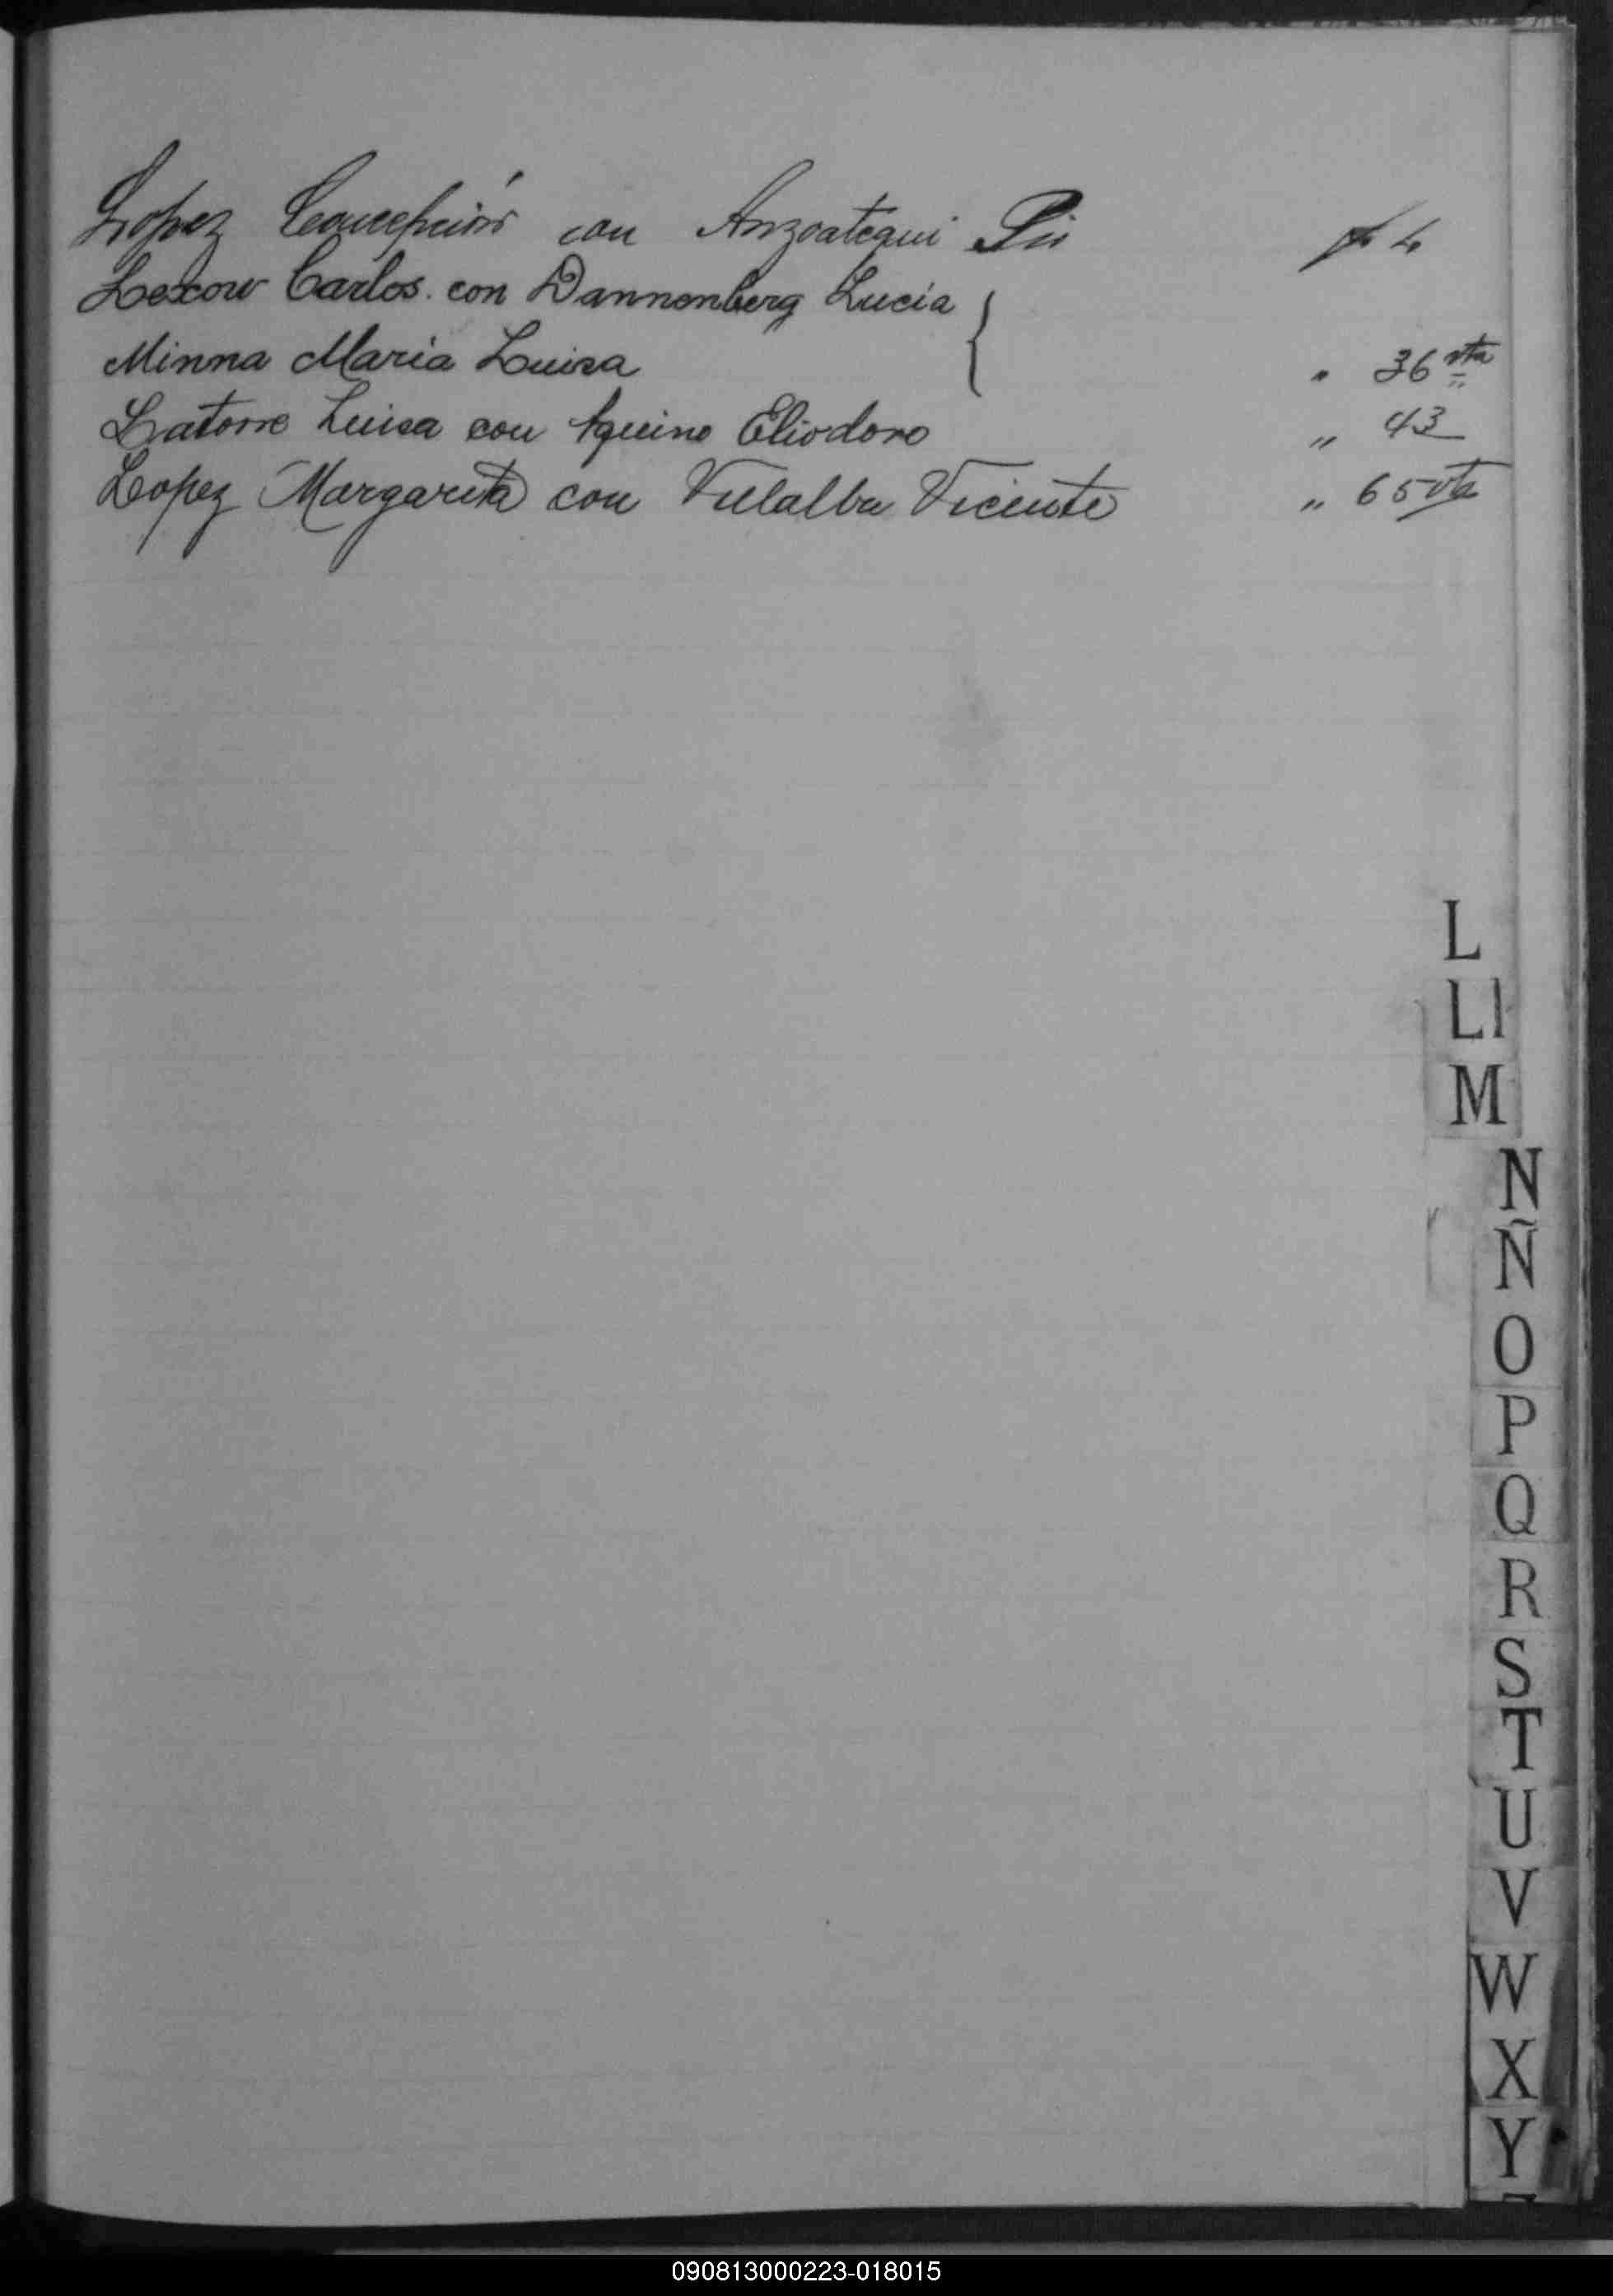 Lopez Concepción con Anzoategui Pio fo 4
Lexow Carlos. con Dannenberg Lucía
Minna María Luisa " 36 vta
Latorre Luisa con Aquino Eliodoro " 43
Lopez Margarita con Villalba Vicente " 65 vta
L
Ll
M
N
Ñ
O
P
Q
R
S
T
U
V
W
X
Y
090813000223-018015